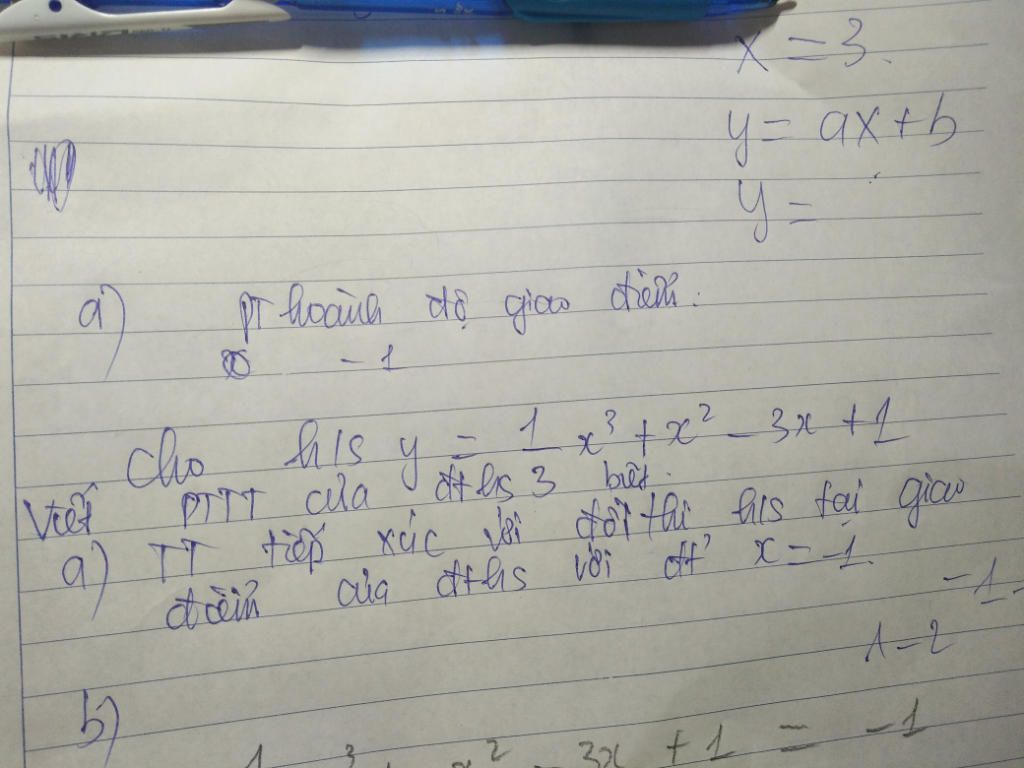 x = 3.
y = ax + b
y =
a) PT hoành độ giao điểm:
- 1
Cho h/s y = 1/3 x³ + x² - 3x + 1
Viết PTTT của đths biết.
a) TT tiếp xúc với đồi thi h/s tại giao
điểm của đths với đt x = -1.
- 1
1 - 2
b)
1 3 + x² - 3x + 1 = - 1